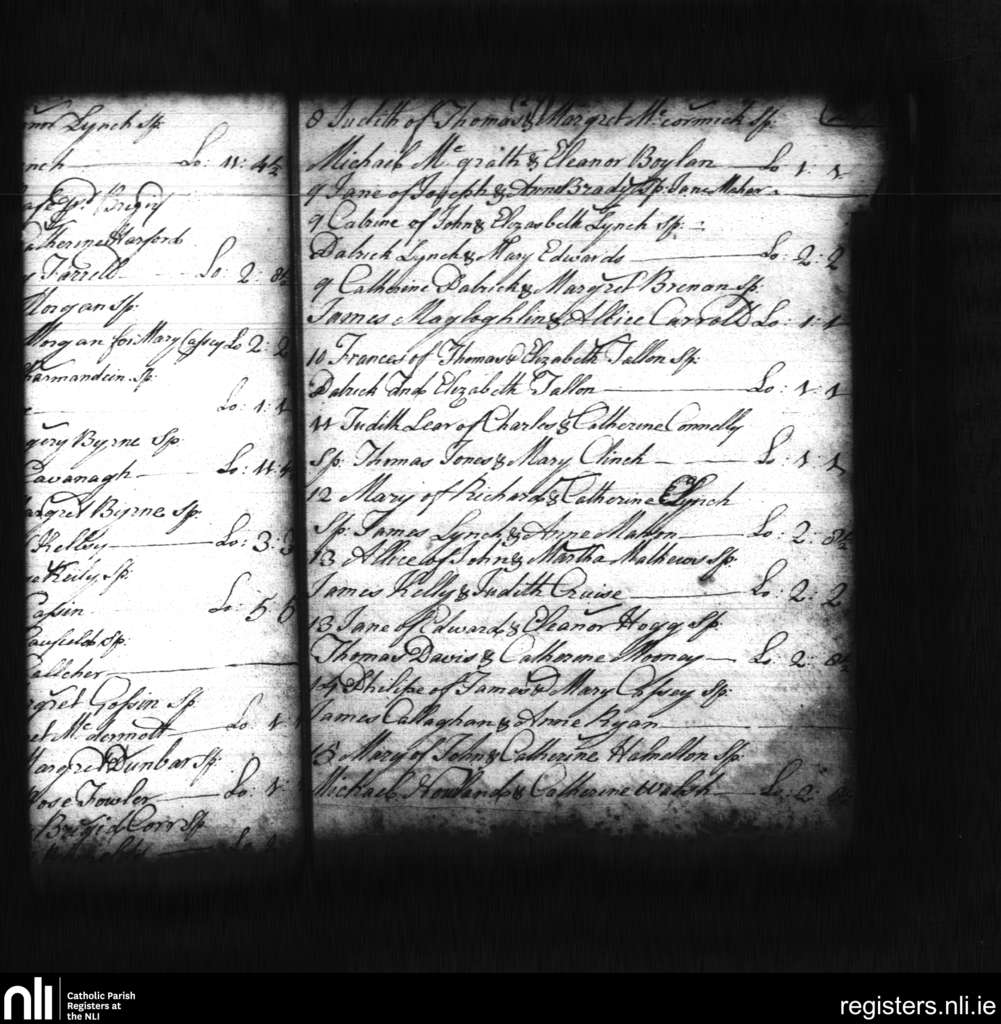 Lynch Sp:
Lo: 11: 4½
Catherine Harford
Farrell Lo: 2: 8½
Morgan Sp:
Morgan for Mary Cassey Lo 2: 2
Sp:
Lo: 1: 1
Byrne Sp:
Cavanagh Lo: 11: 4
Byrne Sp:
Kelly Lo: 3: 3
Keily, Sp:
Cassin Lo: 5 5
Caufield Sp:
Sp:
Mc dermott Lo: 1: 1
Margret Dunbar Sp:
Rose Fowler Lo: 1:
Brigid Corr Sp
8 Judith of Thomas & Margret Mc cormick Sp:
Michael Mc grath & Eleanor Boylan Lo 1: 1
9 Jane of Joseph & Anne Brady Sp: Jane Maher
9 Catrine of John & Elizasbeth Lynch Sp:
Patrick Lynch & Mary Edwards Lo: 2: 2
9 Catherine Patrick & Margret Brenan Sp:
James Magloghlin & Allice Carroll Lo: 1: 1
10 Frances of Thomas & Elizabeth Tallon Sp:
Patrick and Elizabeth Tallon Lo: 1: 1
11 Judith Lear of Charles & Catherine Connelly
Sp: Thomas Jones & Mary Clinch Lo: 1: 1
12 Mary of Richard & Catherine Lynch
Sp: James Lynch & Anne Mahon Lo: 2: 8½
13 Allice of John & Martha Mathews Sp:
James Kelly & Judith Cruise Lo: 2: 2
13 Jane of Edward & Eleanor Hogg Sp:
Thomas Davis & Catherine Mooney Lo: 2: 8½
14 Philipe of James & Mary Cassey Sp:
James Callaghan & Annie Ryan
15 Mary of John & Catherine Hamelton Sp:
Michael Howland & Catherine Walsh Lo: 2:
nli
Catholic Parish
Registers at
the NLI
registers.nli.ie